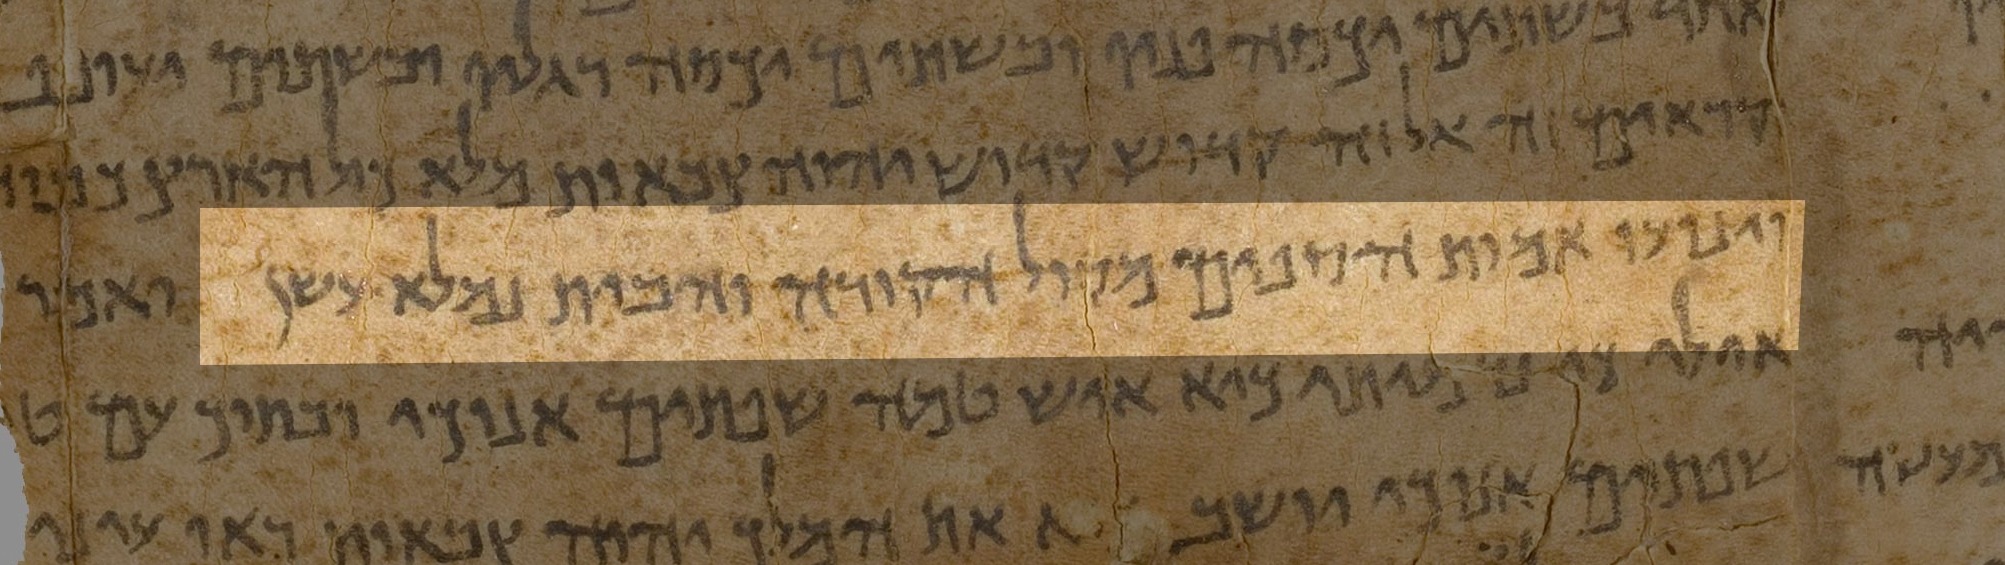 בשתים יכסה פניו ובשתים יכסה רגליו ובשתים
קראים זה אל זה קדוש קדוש יהוה צבאות מלא כול הארץ
וינועו אמות הספים מקול הקורה והבית נמלא עשן ואמר
אילי כי נדמיתי כיא איש טמה שפתים אנוכי ובתוך עם
שפתים אנוכי יושב את המלך יהוה צבאות ראו עיני